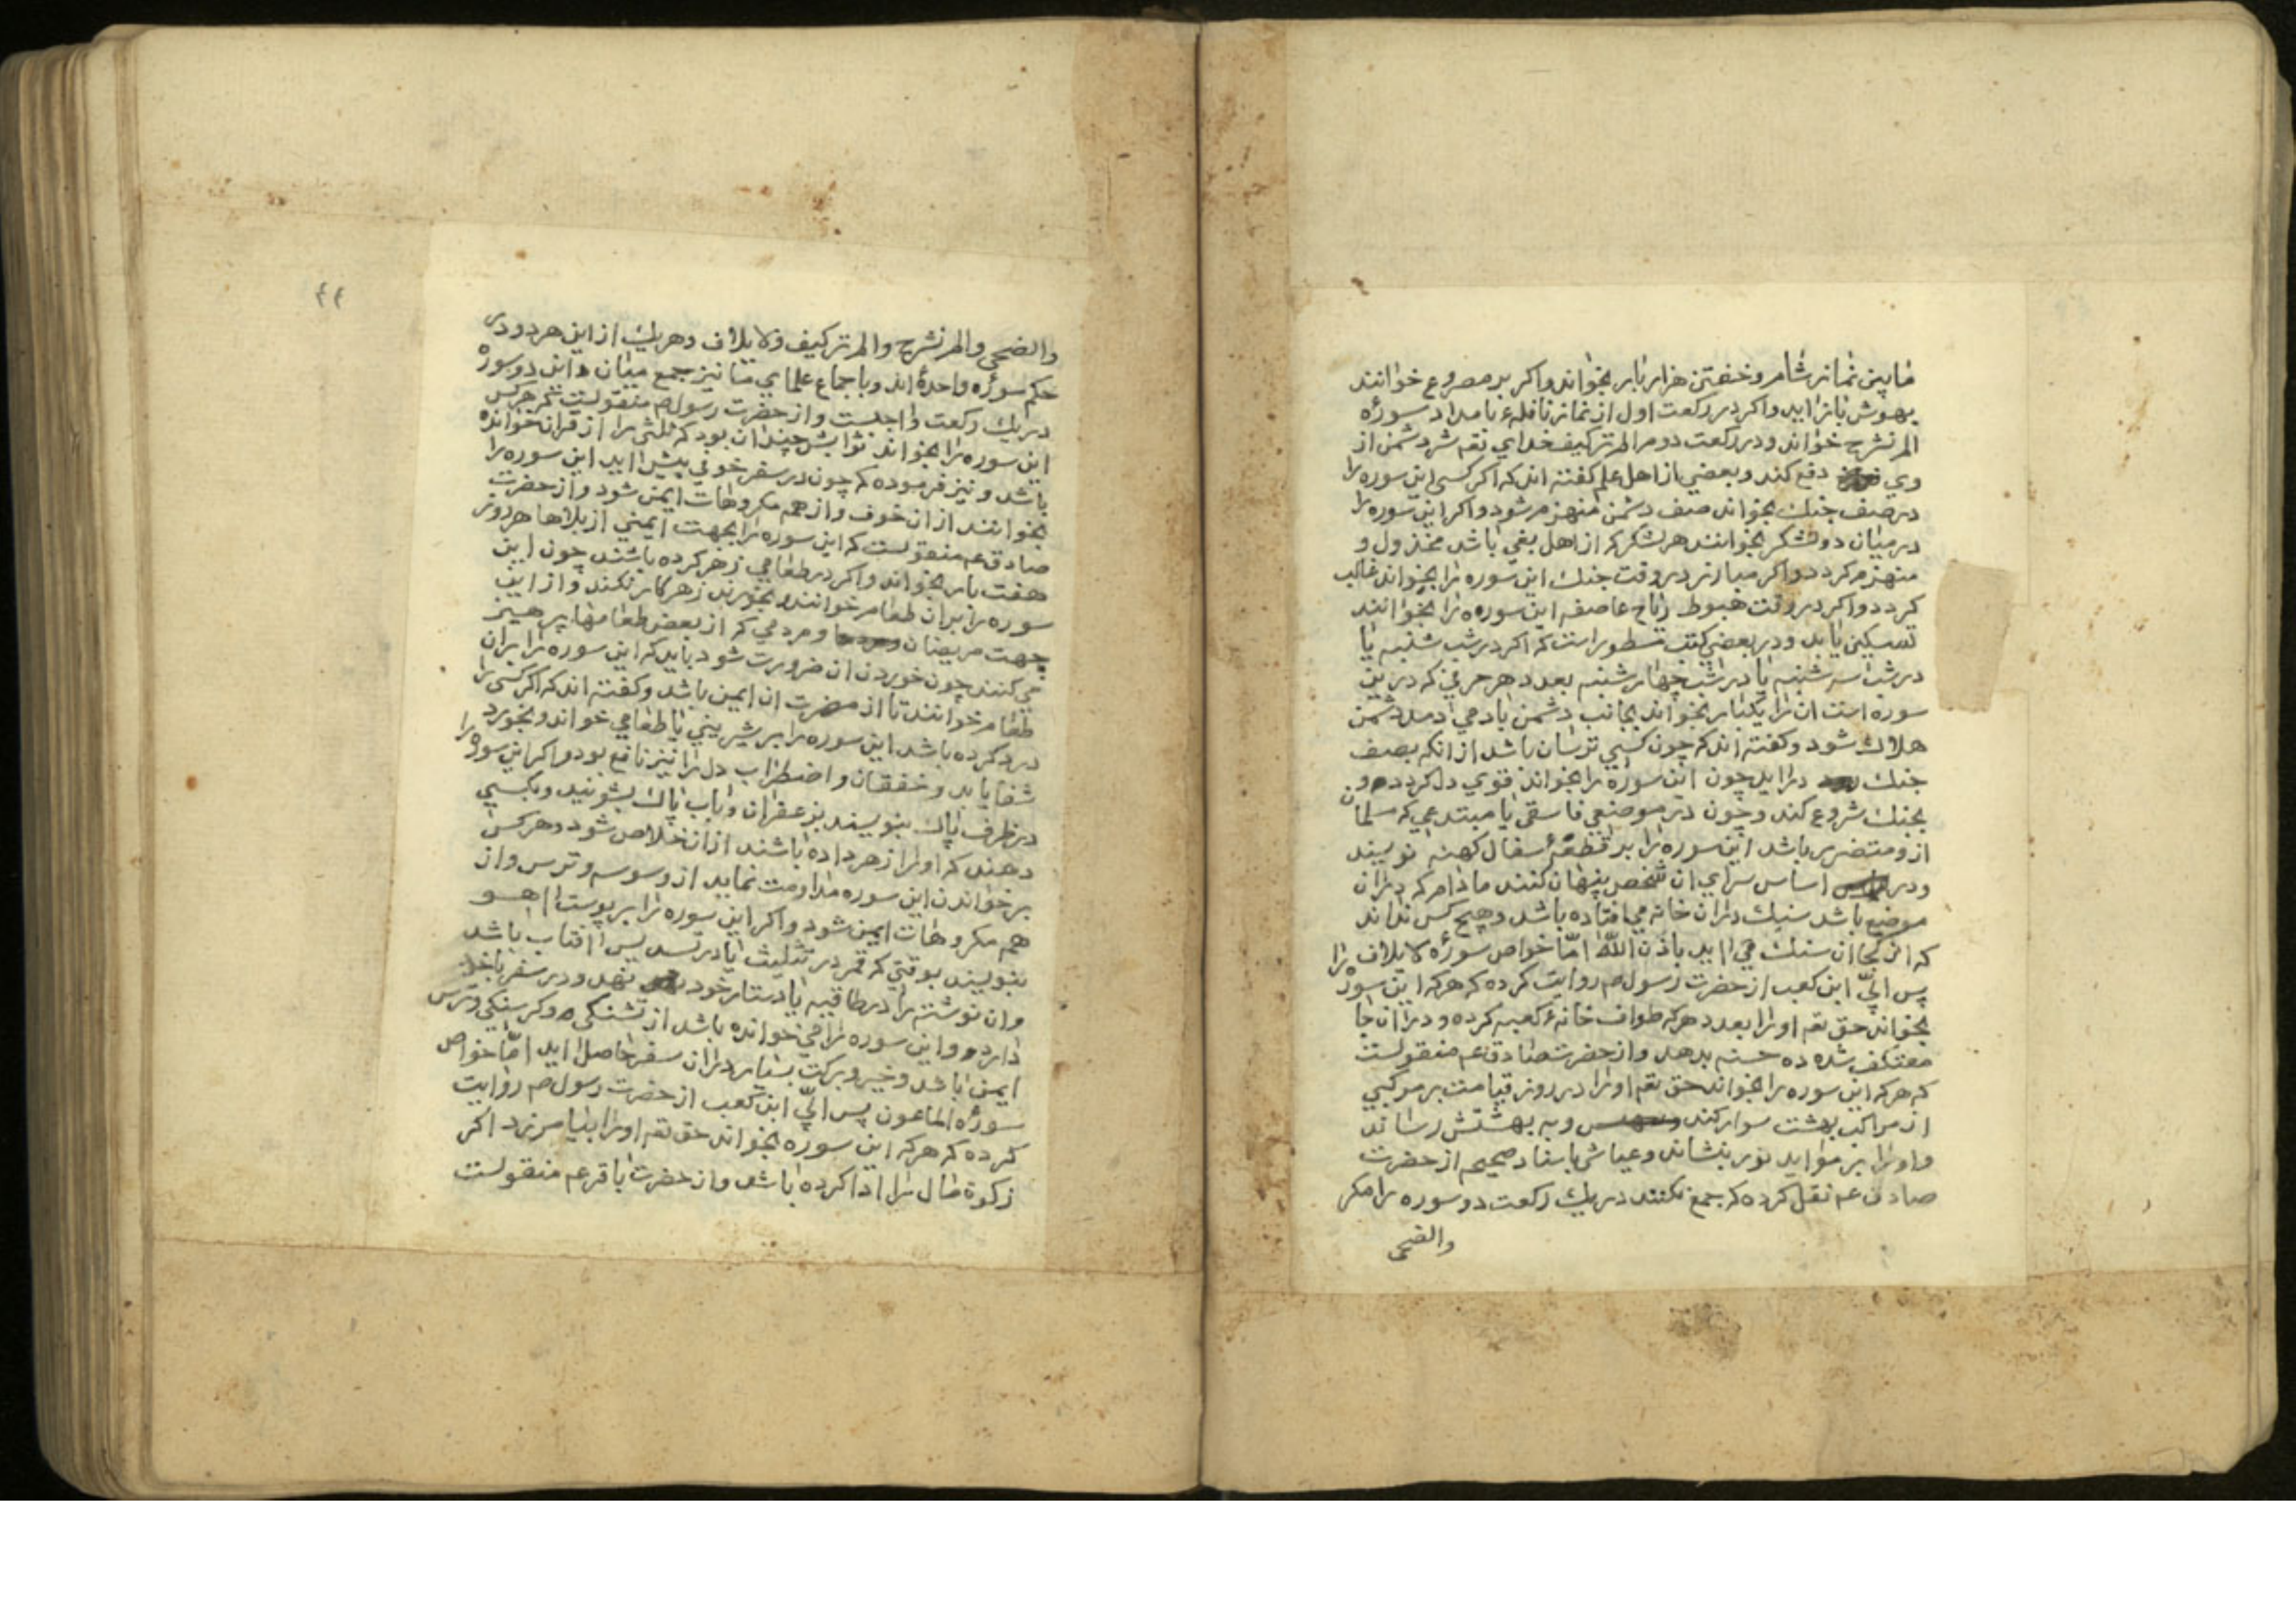 مابین نماز شام و خفتن هزار بار بخواند و اکر بر مصروع خوانند
بهوش باز اید و اکر در رکعت اول از نماز نافلهء بامداد سورهٔ
الم نشرح خواند و در رکعت دوم الم ترکیف خدای تعه شر دشمن از
وی دفع کند و بعضی از اهل علم کفته اند که اکر کسی این سوره را
در صف جنك بخواند صف دشمن منهزم شود و اکر این سوره را
در میان دو لشکر بخوانند هر لشکر که از اهل بغی باشد مخذول و
منهزم کردد و اکر مبارز در وقت جنك این سوره را بخواند غالب
کردد و اکر در وقت هبوط ریاح عاصفه این سوره را بخوانند
تسکین یابد و در بعضی کتب مسطور است که اکر در شب شنبه یا
در شب سه شنبه یا در شب چهار شنبه بعدد هر حرفی که در این
سوره است ان را یکبار بخواند بجانب دشمن باد می دمد دشمن
هلاك شود و کفته اند که چون کسی ترسان باشد از انکه بصف
جنك در اید چون این سوره را بخواند قوی دل کردد و
بجنك شروع کند و چون در موضعی فاسقی یا مبتدعی که مسلمان
ازو متضرر باشد این سوره را بر قطعهٔ سفال کهنه نویسند
و در اساس سرای ان شخص پنهان کنند مادام که دران
موضع باشد سنك دران خانه می افتاده باشد و هیچ کس نداند
که از کجا ان سنك می اید باذن الله امّا خواص سورهٔ لایلاف را
پس ابیّ ابن کعب از حضرت رسول صم روایت کرده که هر که این سوره
بخواند حق تعه اورا بعدد هر که طواف خانهٔ کعبه کرده و دران جا
معتکف شده ده حسنه بدهد و از حضرت صادق عم منقولست
که هر که این سوره را بخواند حق تعه اورا در روز قیامت بر مرکبی
از مراکب بهشت سوار کند و به بهشتش رساند
و اورا بر مواید نور بنشاند و عیاشی باسناد صحیح از حضرت
صادق عم نقل کرده که جمع نکنند در یك رکعت دو سوره را مکر
والضحی
٤٤
والضحی والم نشرح والم ترکیف و لایلاف و هریك از این هر دو در
حکم سورهٔ واحدهٔ اند و باجماع علمای ما نیز جمع میان این دو سوره
در یك رکعت واجبست و از حضرت رسول صم منقولست که هر کس
این سوره را بخواند ثوابش چندان بود که ثلثی را از قران خوانده
باشد و نیز فرموده که چون در سفر خوفی پیش اید این سوره را
بخوانند از ان خوف و از همه مکروهات ایمن شود و از حضرت
صادق عم منقولست که این سوره را بجهت ایمنی از بلاها هر روز
هفت بار بخواند و اکر در طعامی زهر کرده باشند چون این
سوره را بران طعام خوانند و بخورند زهر کار نکند و از این
جهت مریضان و مردمی که از بعض طعامها پرهیز
می کنند چون خوردن ان ضرورت شود باید که این سوره را بران
طعام خوانند تا از مضرت ان ایمن باشد و کفته اند که اکر کسی را
درد کرده باشد این سوره را بر شیرینی یا طعامی خواند و بخورد
شفا یابد و خفقان و اضطراب دل را نیز نافع بود و اکر این سوره را
در ظرف پاك بنویسند بزعفران و باب پاك بشویند و بکسی
دهند که اورا زهر داده باشند از ان خلاص شود و هر کس
بر خواندن این سوره مداومت نماید از وسوسه و ترس و از
همه مکروهات ایمن شود و اکر این سوره را بر پوست اهو
بنویسند بوقتی که قمر در تثلیث یا در تسدیس افتاب باشد
و ان نوشته را در طاقیه یا دستار خود نهد و در سفر با خود
دارد و این سوره را می خوانده باشد از تشنکی و کرسنکی و ترس
ایمن باشد و خیر و برکت بسیار دران سفر حاصل اید امّا خواص
سورهٔ الماعون پس ابیّ ابن کعب از حضرت رسول صم روایت
کرده که هر که این سوره بخواند حق تعه اورا بیامرزد اکر
زکوة مال را ادا کرده باشد و از حضرت باقر عم منقولست